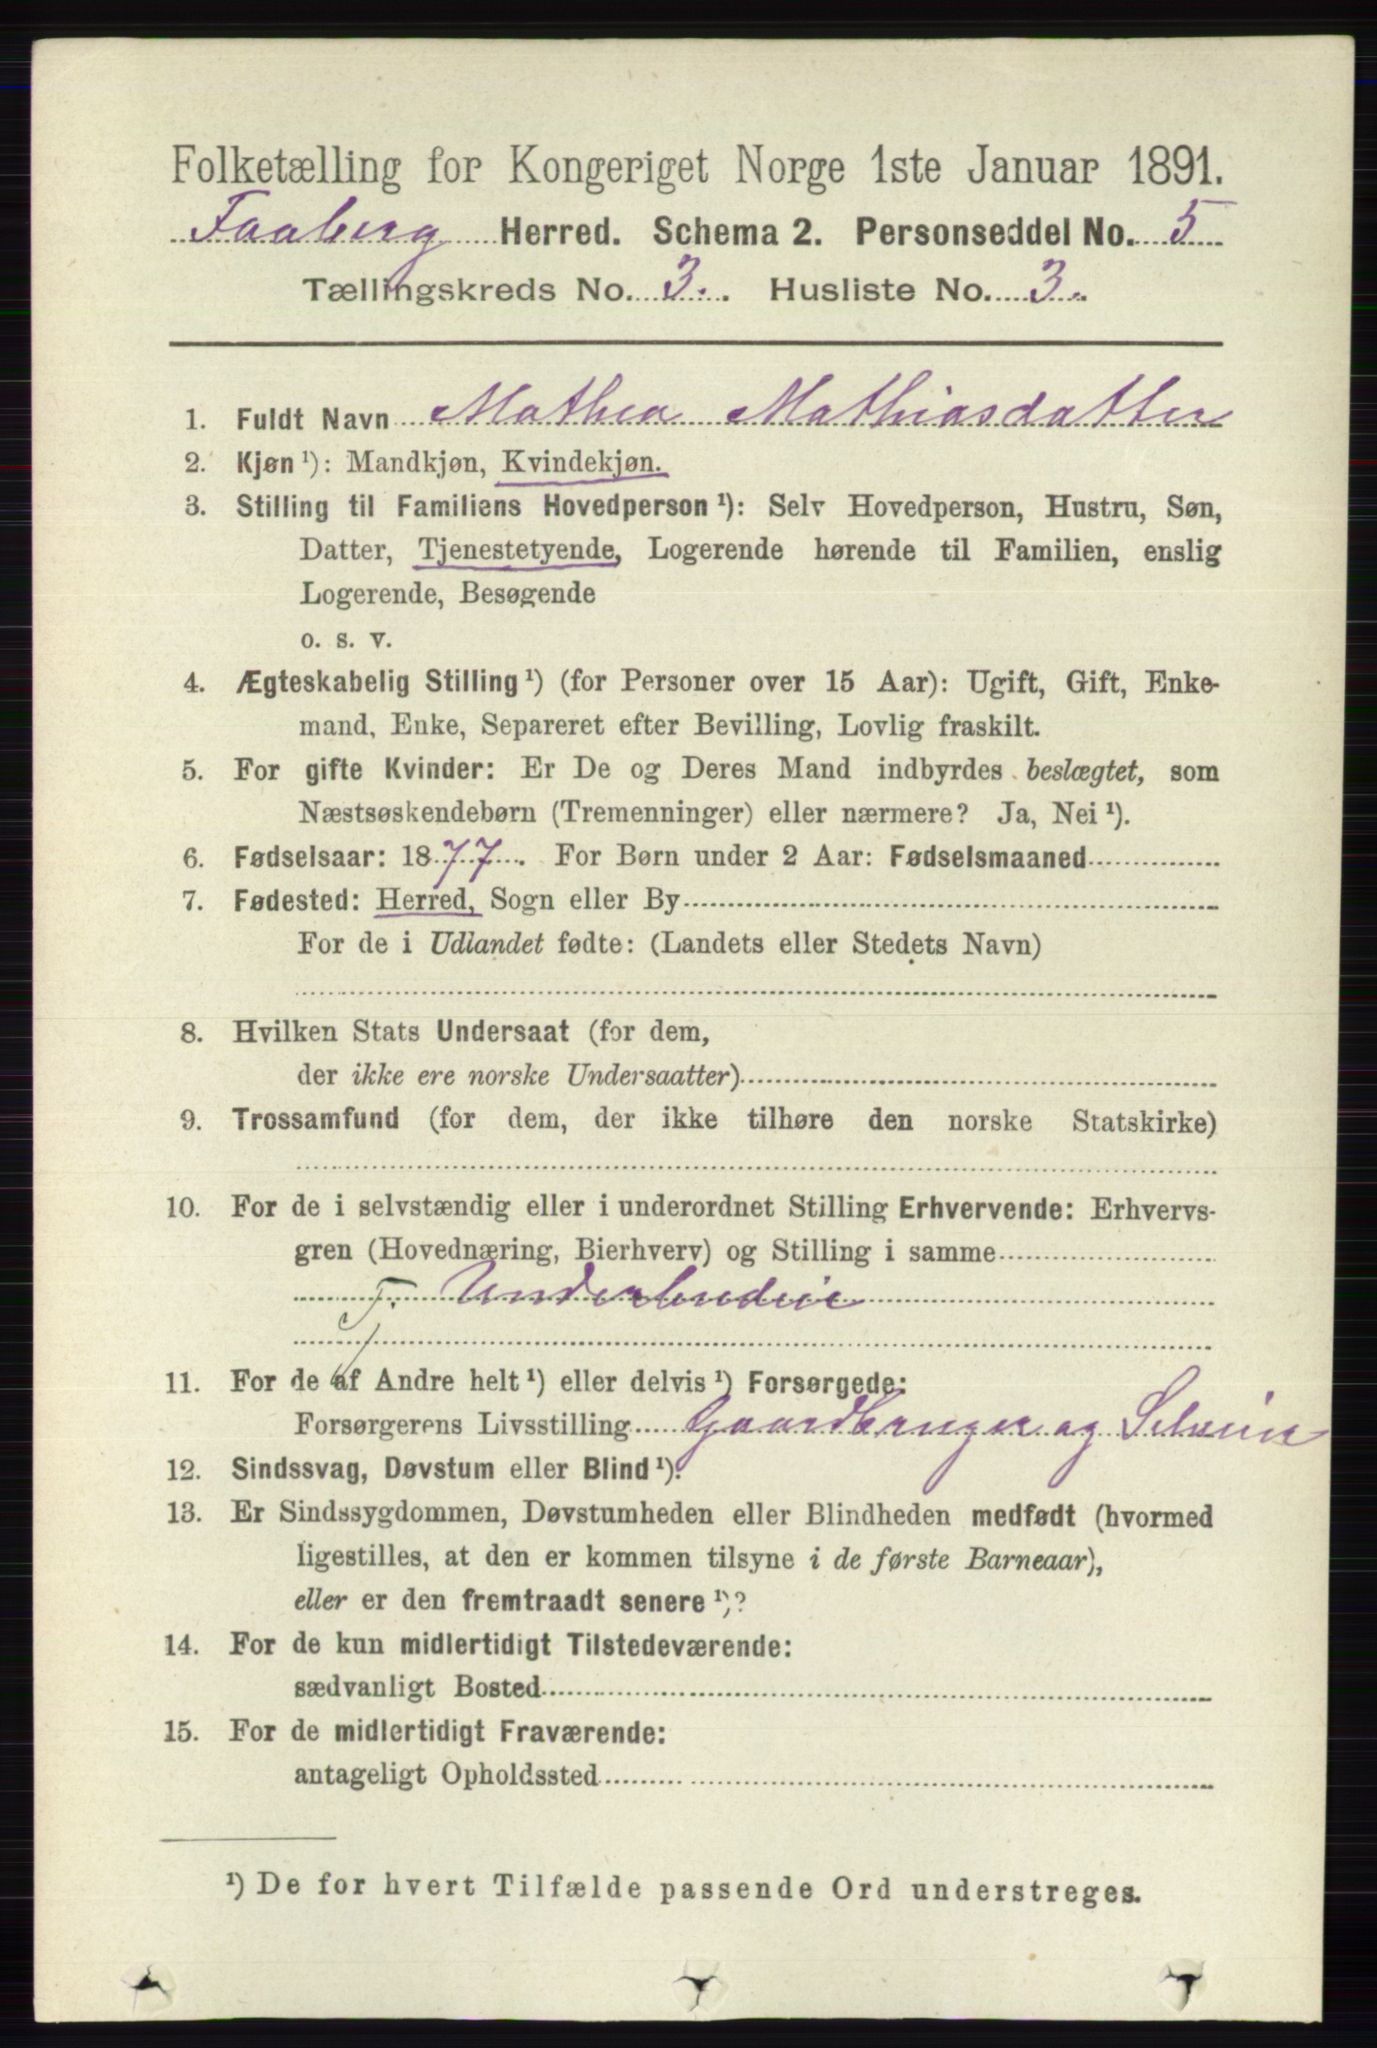 Folketælling for Kongeriget Norge 1ste Januar 1891.
Faaberg Herred. Schema 2. Personseddel No. 5
Tællingskreds No. 3. Husliste No. 3.
1. Fuldt Navn Mathea Mathiasdatter
2. Kjøn ¹): Mandkjøn, Kvindekjøn.
3. Stilling til Familiens Hovedperson ¹): Selv Hovedperson, Hustru, Søn,
Datter, Tjenestetyende, Logerende hørende til Familien, enslig
Logerende, Besøgende
o. s. v.
4. Ægteskabelig Stilling ¹) (for Personer over 15 Aar): Ugift, Gift, Enke-
mand, Enke, Separeret efter Bevilling, Lovlig fraskilt.
5. For gifte Kvinder: Er De og Deres Mand indbyrdes beslægtet, som
Næstsøskendebørn (Tremenninger) eller nærmere? Ja, Nei ¹).
6. Fødselsaar: 1877. For Børn under 2 Aar: Fødselsmaaned
7. Fødested: Herred, Sogn eller By
For de i Udlandet fødte: (Landets eller Stedets Navn)
8. Hvilken Stats Undersaat (for dem,
der ikke ere norske Undersaatter)
9. Trossamfund (for dem, der ikke tilhøre den norske Statskirke)
10. For de i selvstændig eller i underordnet Stilling Erhvervende: Erhvervs-
gren (Hovednæring, Bierhverv) og Stilling i samme
F. Underbudeie
11. For de af Andre helt ¹) eller delvis ¹) Forsørgede:
Forsørgerens Livsstilling Gaardbruger og Selveier
12. Sindssvag, Døvstum eller Blind ¹).
13. Er Sindssygdommen, Døvstumheden eller Blindheden medfødt (hvormed
ligestilles, at den er kommen tilsyne i de første Barneaar),
eller er den fremtraadt senere ¹)?
14. For de kun midlertidigt Tilstedeværende:
sædvanligt Bosted
15. For de midlertidigt Fraværende:
antageligt Opholdssted
¹) De for hvert Tilfælde passende Ord understreges.